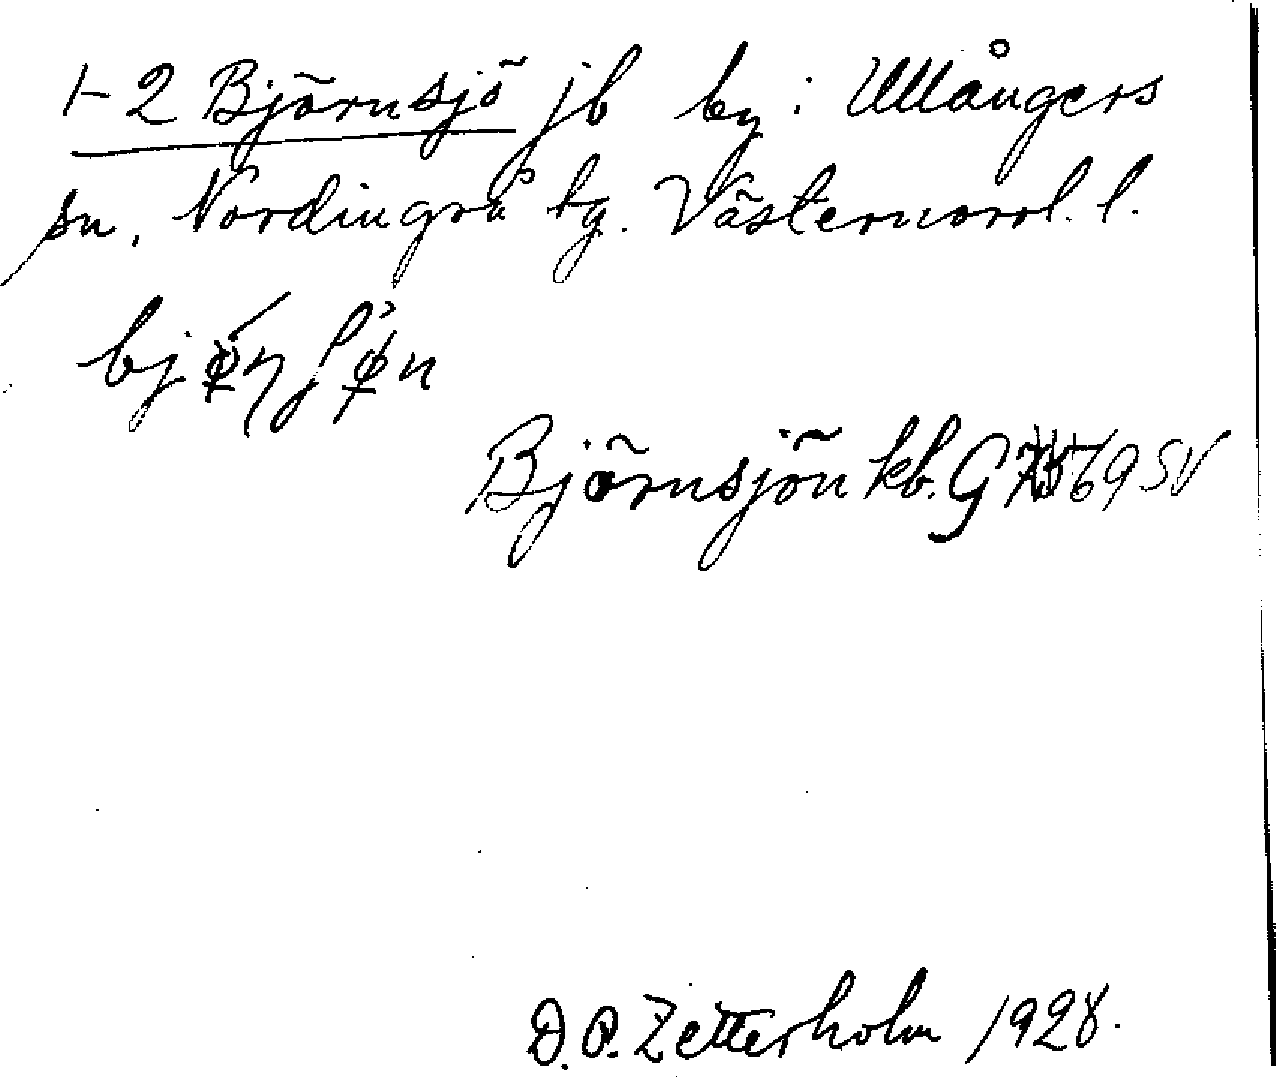 1-2 Björnsjö jb by i Ullångers
sn, Nordingrå tg. Västernorrl. l.
Björnsjön kb. G 69 SV
D. O. Zetterholm 1928.